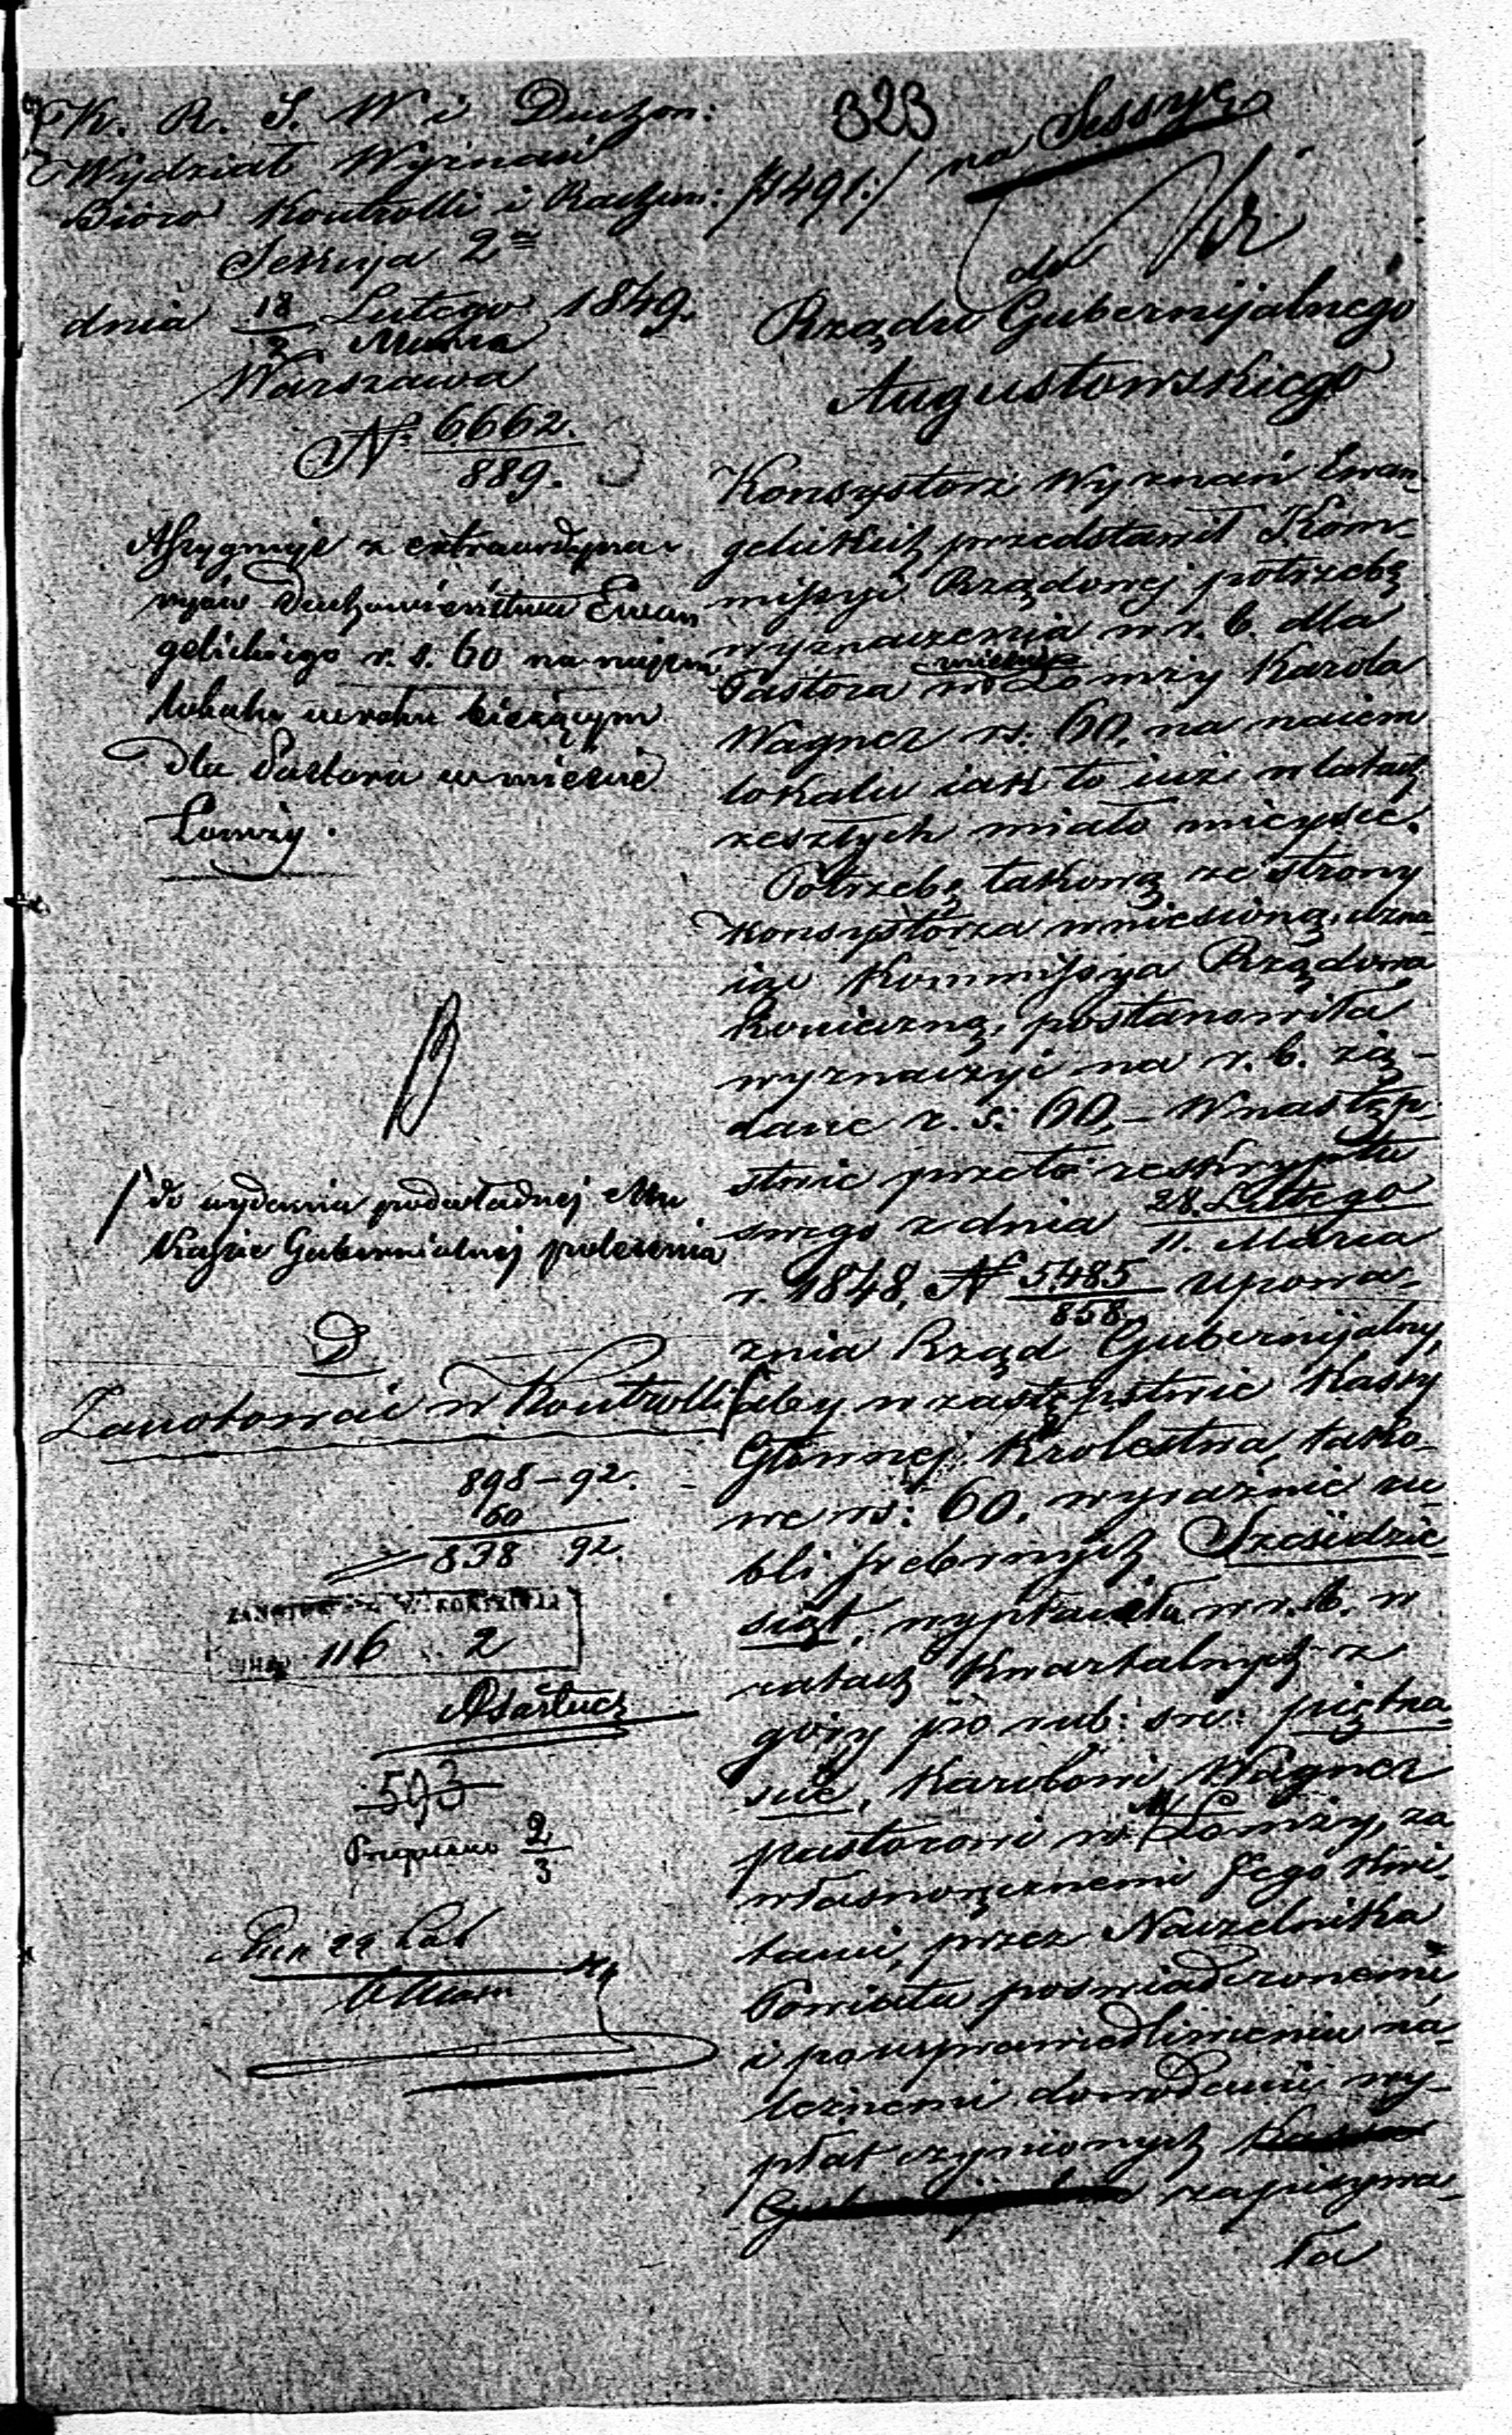 323
na Sessyę
K. R. S. W. i Duchow:
Wydział Wyznań
Bióro Kontrolli i Rachun: /:1491:/
Sekcyja 2ª
dnia 18 Lutego 1849.
2 Marca
Warszawa
N: 6662.
889.
Assygnuje z extraordyna-
ryów Duchowieństwa Ewan
gelickiego r. s. 60 na najem
lokalu w roku bieżącym
dla Pastora w mieście
Łomży.
/ do wydania podwładnej Mu
Kassie Gubernialnej polecenia
Zanotować w Kontrolli
898 - 92.
60
838 92.
ZANOTOWANO W KONTROLLI
116 2
593
Przepisano 2/3
do
Rządu Gubernijalnego
Augustowskiego
Konsystorz Wyznań Ewan-
gelickich przedstawił Kom-
missyi Rządowej potrzebę
wyznaczenia w r. b. dla
Pastora w mieście Łomży Karola
Wagner rs: 60, na naiem
lokalu iak to iuż w latach
zeszłych miało mieysce.
Potrzebę takową ze strony
Konsystorza wniesioną, uzna-
iąc Kommissya Rządowa
konieczną, postanowiła
wyznaczyć na r. b. żą-
dane r. s: 60. - W następ-
stwie przeto reskryptu
swego z dnia 28. Lutego
11. Marca
r. 1848, N 5485 upowa-
858
żnia Rząd Gubernijalny,
/ aby w zastępstwie Kassy
Głównej Królestwa, tako-
we rs: 60. wyraźnie ru-
bli srebrnych Sześćdzie-
siąt, wypłaciła w r. b. w
ratach kwartalnych z
góry po rub: sr: piętna-
ście, Karolowi Wagner
pastorowi w M. Łomży, za
własnoręcznemi Jego kwi-
tami, przez Naczelnika
Powiatu poświadczonemi
i po usprawiedliwieniu na-
leżnemi dowodami wy-
płat czynionych Kassa
Gubernijalna zapisywa-
ła